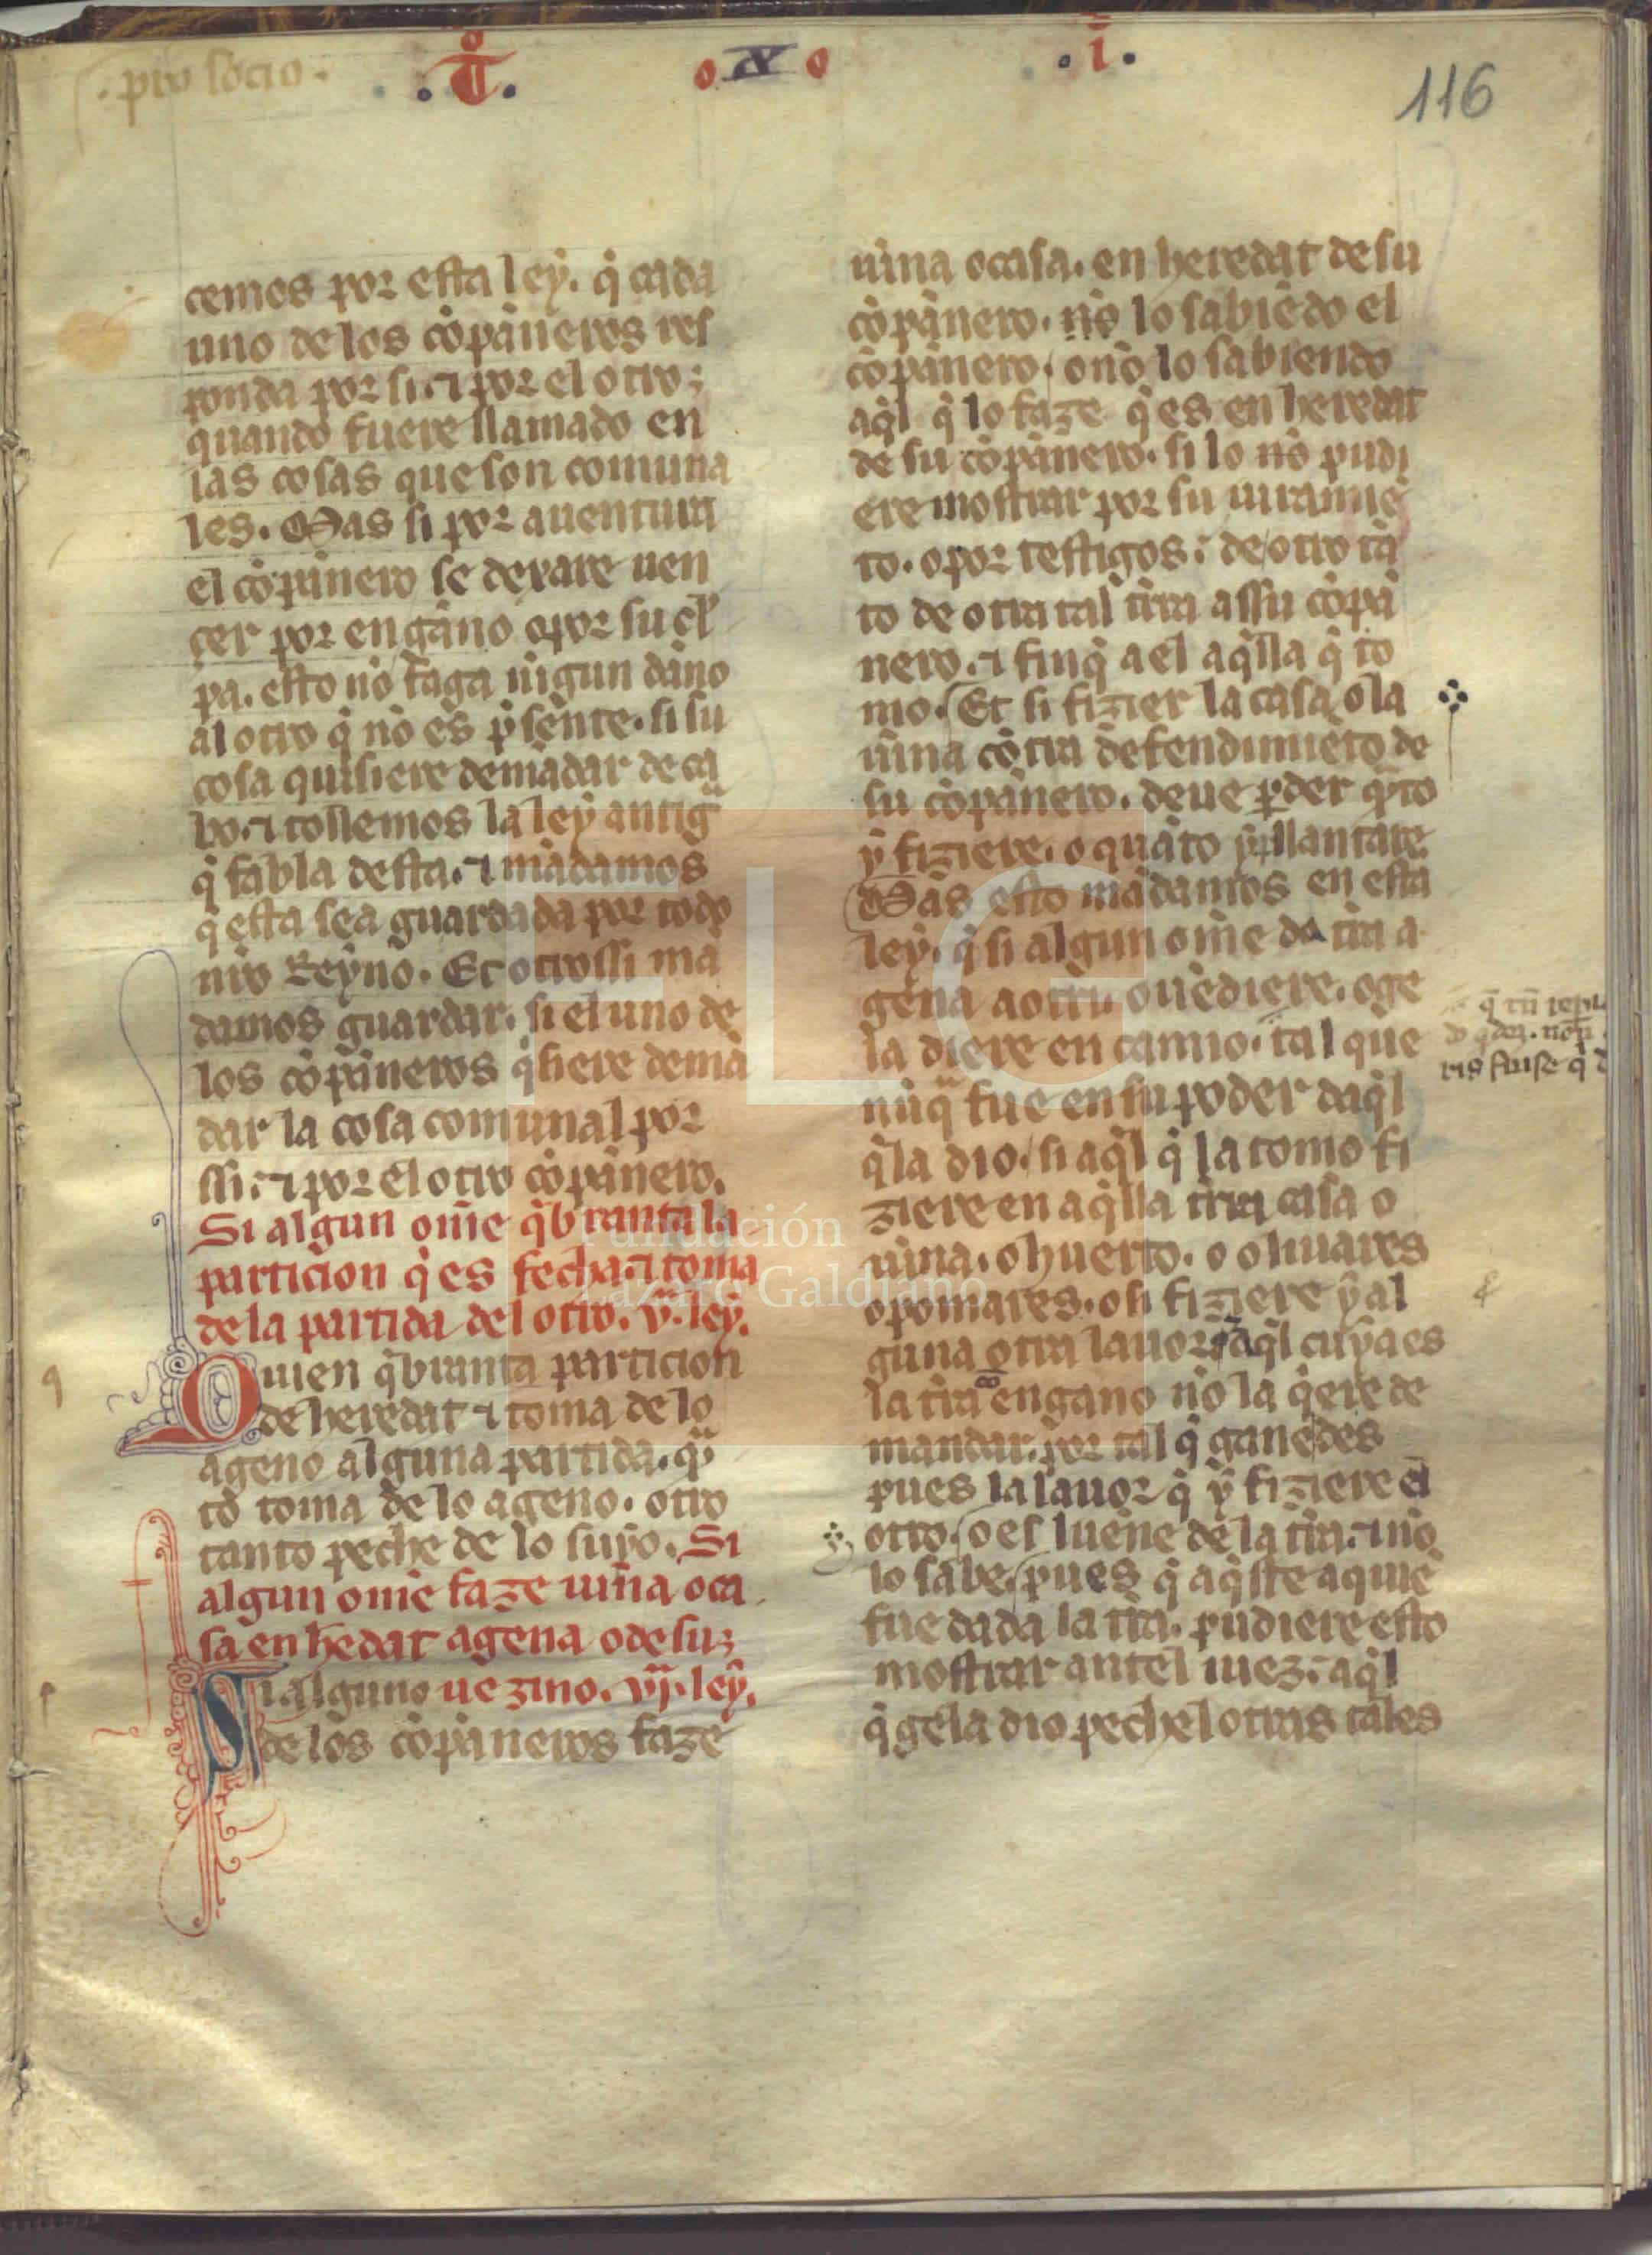 .pro socio.
.T. X .i.
116
cemos por esta ley. q̇ cada
uno de los cȯpãneros res
ponda por si. ⁊ por el otro;
quando fuere llamado en
las cosas que son comuna
les. Mas si por auentura
el cȯpãnero se dexare uen
cer por engãno o por su cl̉
pa. esto nȯ faga nĩgun dãno
al otro q̇ nȯ es p̉sente. si su
cosa quisiere demãdar de ca
bo. ⁊ tollemos la ley antigᷓ
q̇ fabla desta. ⁊ mãdamos
q̇ esta sea guardada por todo
nr̃o Reyno. Et otrossi mã
damos guardar. si el uno de
los cȯpãneros q̇siere demã
dar la cosa comunal por
ssi. ⁊ por el otro cȯpãnero.
Si algun om̃e q̇branta la
particion q̇ es fecha. ⁊ toma
de la partida del otro. v. ley.
Quien q̇branta particion
de heredat ⁊ toma de lo
ageno alguna partida. qᷓ
tȯ toma de lo ageno. otro
tanto peche de lo suyo. Si
algun om̃e faze uin̄a o ca
sa en h̃edat agena o de su;
Si alguno uezino. vj. ley.
de los cȯpãneros faze
uĩna o casa. en heredat de su
cȯpãnero. nȯ lo sabiẽdo el
cȯpãnero. o nȯ lo sabiendo
aq̇l q̇ lo faze q̇ es en heredat
de su cȯpãnero. si lo nȯ pudi
ere mostrar por su iuramiẽ
to. o por testigos; de otro tã
to de otra tal tr̃ra assu cȯpã
nero. ⁊ finq̇ a el aq̇lla q̇ to
mo. Et si fizier la casa o la
uĩna cȯtra defendimiẽto de
su cȯpãnero. deue ꝑder qᷓto
y fiziere. o quãto y pllantare.
Mas esto mãdamos en esta
ley. q̇ si algun om̃e da tr̃ra a
gena a otri. o uẽdiere. o ge
la diere en camio. tal que
nũqᷓ fue en su poder daq̇l
q̇ la dio. si aq̇l q̇ la tomo fi
ziere en aq̇lla tr̃ra casa o
uĩna. o huerto. o oliuares
o pomares. o si fiziere y al
guna otra lauor; ⁊ aq̇l cuya es
la tr̃a engano nȯ la q̇ere de
mandar. por tal q̇ gane des
pues la lauor q̇ y fiziere el
otro. o es luẽne de la tr̃a. ⁊ nȯ
lo sabe. pues q̇ aq̇ste a quiẽ
fue dada la tr̃a. pudiere esto
mostrar antel iuez; aq̇l
q̇ gela dio pechel otras tales